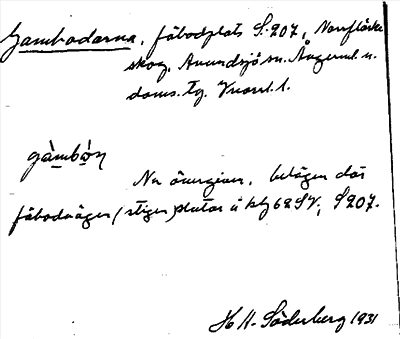 Gambodarna, fäbodplats S. 207, Norrflärke
skog, Anundsjö sn. Ångerml. n.
doms. tg.
gàmbò̱n
Nu övergiven, belägen där
fäbodvägen (stigen) slutar i kbl 62 SV, S 207.
H H. Söderberg 1931